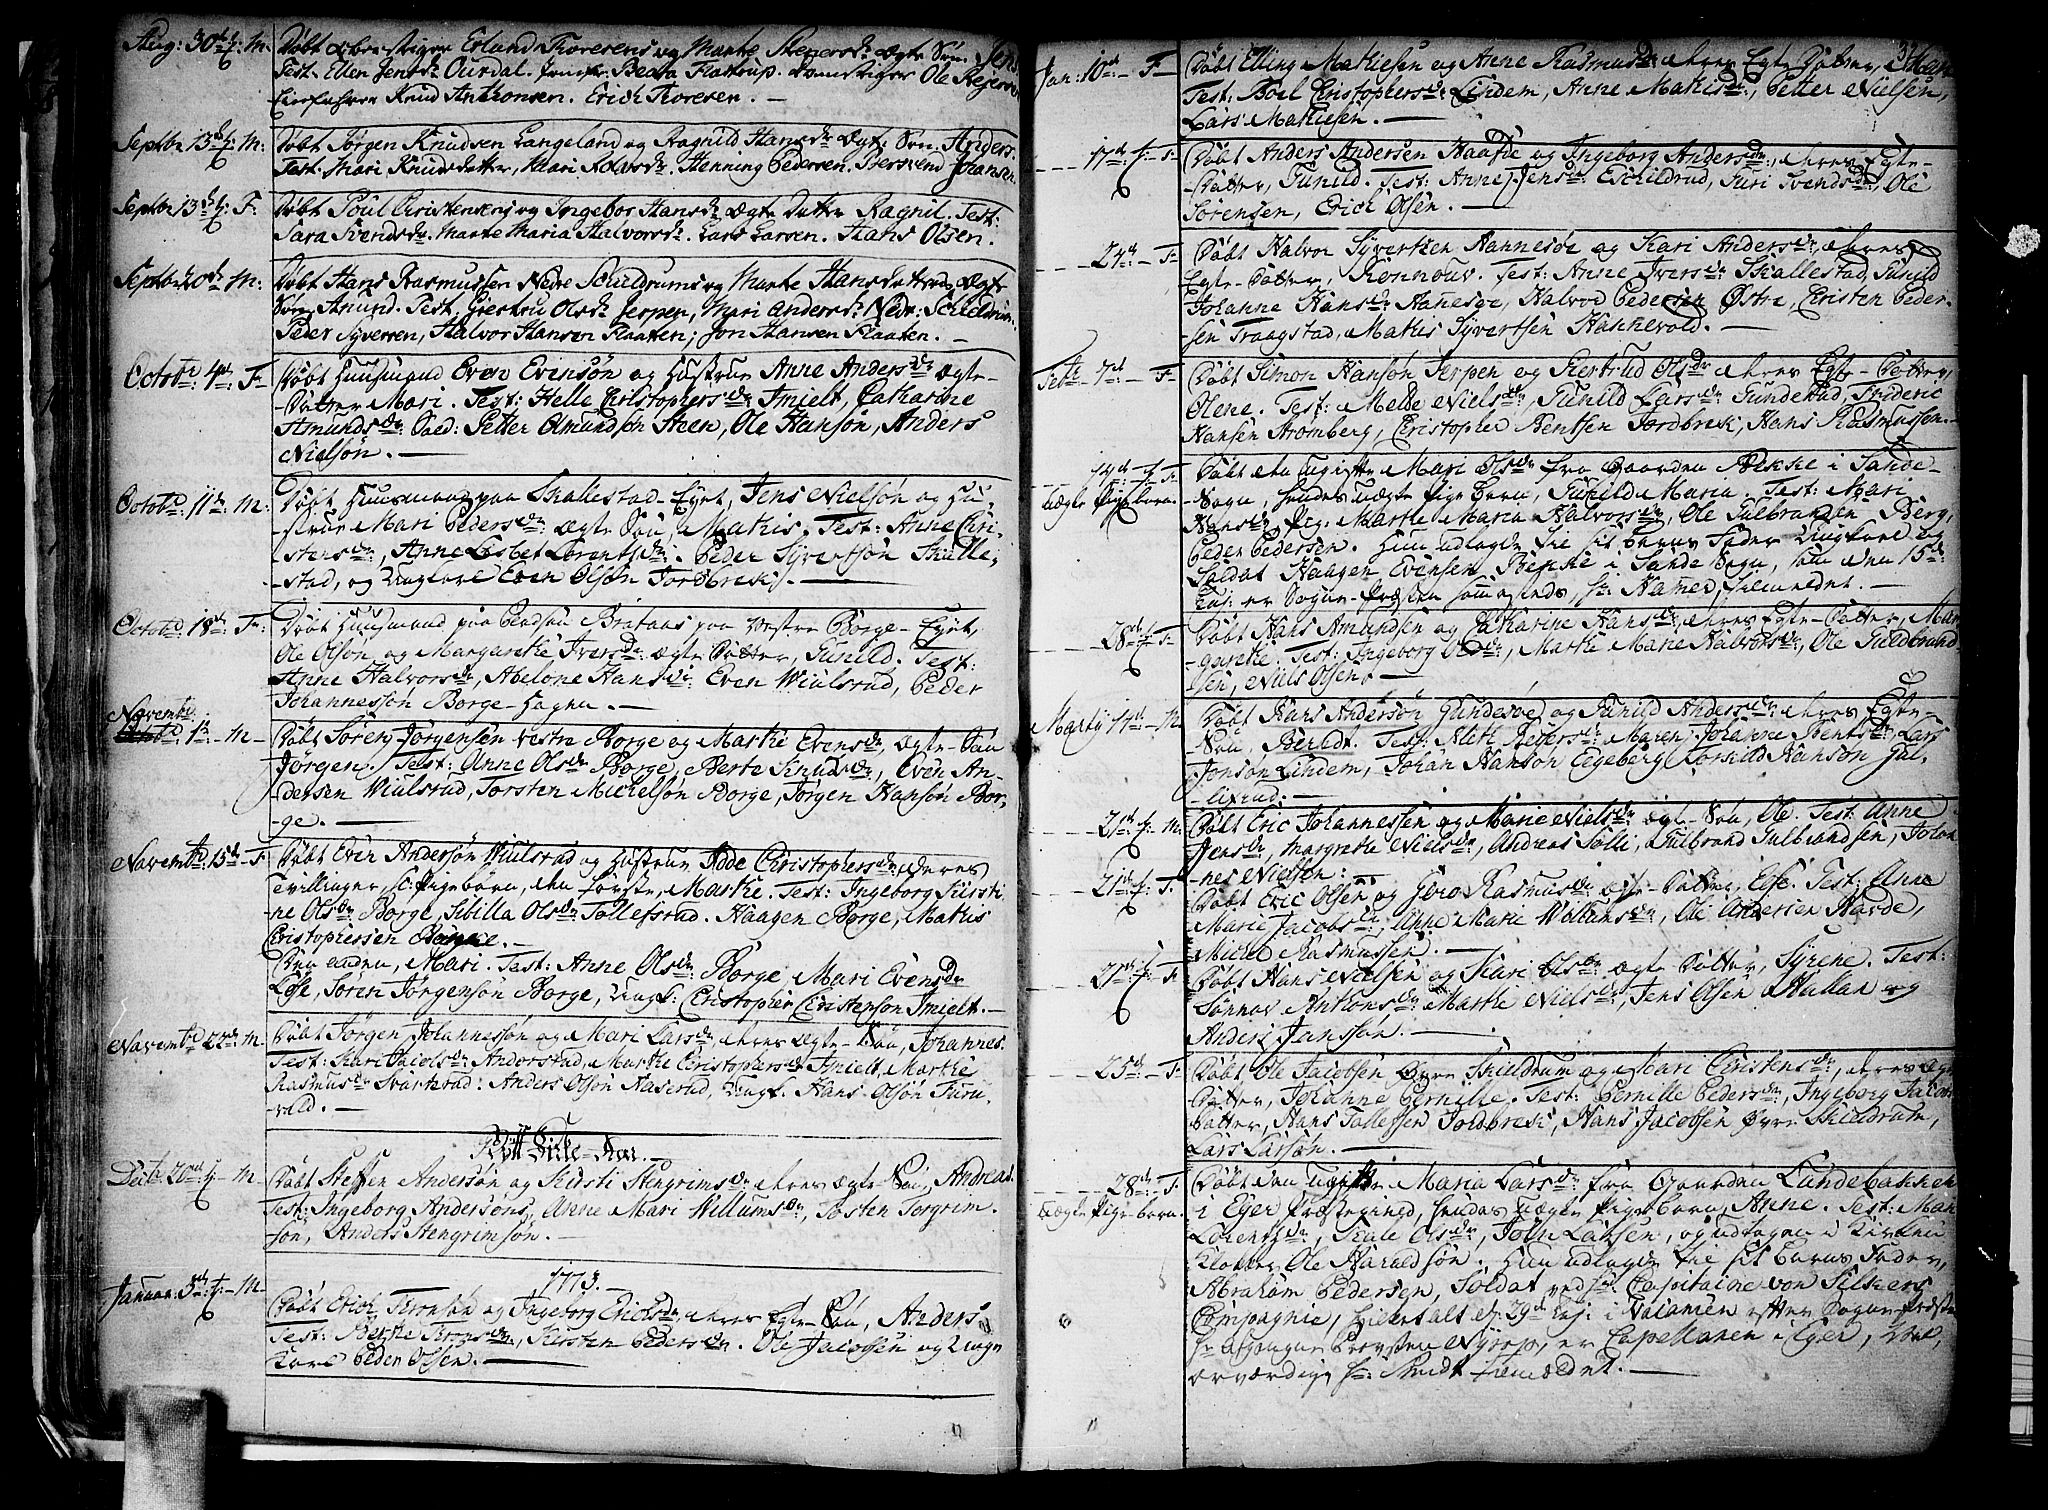 Aug: 30 M. Døbt Erland Thoresens og Marte Stenersdr ægte Søn Jens
Test: Ellen Jensdr Ourdal. Jomfr: Beata Flattrup. Ole Regersen
Knud Anthonsen. Erich Thoresen. —
Septbr 13 M. Døbt Jørgen Knudsen Langeland og Ragnild Hansdr Ægte Søn Anders.
Test: Mari Knudsdatter, Mari Henning Pedersen. Johansen
Septbr 13 F. Døbt Poul Christensens og Ingebor Hansdr Ægte Datter Ragnil. Test:
Sara Svendsdr. Marte Maria Halvorsdr. Lars Larsen. Hans Olsen.
Septbr 20 M. Døbt Hans Rasmussen Nedre Schildrums og Marte Hansdatters Ægte
Søn Amund. Test. Giertru Olsdr Jerpen, Mari Andersdr Nedr: Schildrum
Peder Syversen, Halvor Hansen Flaatten, Jon Hansen Flaaten. —
Octobr 4 F. Døbt Huusmand Even Evensøn og Hustrue Anne Andersdr Ægte
Datter Mari. Test: Helle Christophersdr Imielt, Catharine
Amundsdr Petter Amundsøn Steen, Ole Hansøn, Anders
Nielsøn. —
Octobr 11 M. Døbt Huusmand paa Skallestad-Eyet, Jens Nielsøn og Hu-
strue Mari Pedersdr Ægte Søn, Mathis. Test: Anne Chri-
stensdr, Anne Lisbet Lorentsdr. Peder Syvertsøn Skalle-
stad, og Ungkarl Even Olsøn Jordbrek. —
Octobr 18 F. Døbt Huusmand paa Pladsen Brataas paa Vestre Borge-Eyet,
Ole Olsøn og Margarethe Iversdr Ægte Datter, Gunild. Test:
Anne Halvorsdr, Abelone Hansdr Even Wiulsrud, Peder
Johannessøn Borge-Hagen. —
Novembr
1 M. Døbt Søren Jørgensen Vestre Borge og Marthe Evensdr, Ægte Søn
Jørgen. Test: Anne Olsdr Borge, Berte Knudsdr, Even An-
dersen Wiulsrud, Torsten Michelsøn Borge, Jørgen Hansøn Bor-
ge. —
Novembr 15 F. Døbt Even Andersøn Wiulsrud og Hustrue Adde Christophersdr deres
Tvillinger, Pigebørn, den første, Marthe. Test: Ingeborg Kirsti-
ne Olsdr Borge, Sibilla Olsdr Tollefsrud. Haagen Borge, Mathis
Christophersen Borge. —
Den anden, Mari. Test: Anne Olsdr Borge, Mari Evensdr
Søren Jørgensøn Borge, Ungk: Christopher Christensøn Imielt. —
Novembr 22 M. Døbt Jørgen Johannessøn og Mari Larsdr deres Ægte Søn, Johannes.
Test: Kari Jacobsdr Anderstad, Marthe Christophersdr Imielt, Marthe
Rasmusdr Svartsrud: Anders Olsøn Naserud, Ungk. Hans Olsøn Furu-
vald. —
Nytt Kirke-Aar.
20 M Døbt Steffen Andersøn og Kisti Stengrimsdr deres Ægte Søn, Andreas.
Test: Ingeborg Andersdr, Anne Mari Willumsdr, Tosten Torgrim-
søn, Anders Stengrimsøn. —
1773.
Januar 3 M Døbt Erich Tronsøn og Ingeborg Erichsdr, deres Egte Søn, Anders
Test: Berthe Tronsdr, Kirsten Pedersdr. Ole Jacobsen og Ung-
karl Peder Olsen. —
Jan: 10 F. Døbt Elling Mathiesen og Anne Rasmusdr deres Egte Datter,
Test: Boel Cristophersdr Lindem, Anne Mathisdr, Petter Nielsen,
Lars Mathiesen. —
17 F. Døbt Anders Andersen Haafde og Ingeborg Andersdr, deres Egte-
Datter, Gunild. Test: Anne Jensdr Eschildrud, Guri Svendsdr, Ole
Sørensen, Erich Olsen. —
24 F. Døbt Halvor Syvertsen Hannesøe og Kari Andersdr, deres
Egte Datter, Ronnouv. Test: Anne Iversdr Skallestad, Gunild
Johanne Hansdr Hanesøe, Halvor Pedersen Østre, Cristen Peder-
sen Traagstad, Mathis Syvertsen Hannevold. —
Febr 7 F. Døbt Simon Hansøn Jerpen og Giertrud Olsdr deres Egte Datter,
Olene. Test: Melde Nielsdr, Gunild Larsdr Gundestad, Frideric
Hansen Stromberg, Cristopher Bentsen Jordbrek, Hans Rasmussøn.
14 F. Døbt den Ugifte Mari Olsdr fra Gaarden Bekke i Sande-
uægte Pigebarn. Sogn, hendes uægte Pige Barn, Gunild Maria. Test: Mari
Hansdr Pig: Marthe Maria Halvorsdr, Ole Gulbrandsen Berg,
Peder Pedersen. Hun udlagde til sit Barns Fader Ungkarl og
Soldat Haagen Evensen Bekke i Sande Sogn, som den 15
er Sogne-Præsten sammesteds, Hr: Hamer, tilmeldet. —
28 F. Døbt Hans Amundsen og Catharine Hansdr, deres Egte Datter, Mar-
garethe. Test: Ingeborg Olsdr, Marthe Marie Halvorsdr, Ole Guldbrand-
sen, Niels Olsen. —
Marty 14 M. Døbt Hans Andersøn Gundesøe og Gunild Andersdr deres Egte-
Søn, Berndt. Test: Aleth Regersdr Maren Johanne Bentsdr, Lars
Jonsøn Lindem, Johan Hansøn Egeberg, Torkild Hansøn Gul-
lixrud.
21 M. Døbt Eric Johannessen og Marie Nielsdr ægte Søn, Ole. Test: Anne
Jensdr, Margrethe Nielsdr, Andreas Solli, Gulbrand Gulbrandsen, Johan-
nes Nielsen. —
21 F. Døbt Eric Olsen og Goro Rasmusdr ægte Datter, Else. Test: Anne
Marie Jacobsdr, Anne Marie Willumsdr, Ole Andersen Haavde,
Michel Rasmussen. —
F. Døbt Hans Nielsen og Kari Olsdr ægte Datter, Syrene. Test:
Sønnov Anthonsdr Marthe Nielsdr, Jens Olsen Hullan og
Anders Janssøn. —
25 F. Døbt Ole Jacobsen Øvre Skieldrum og Mari Cristensdr, deres Ægte
Datter, Johanne Pernille. Test: Pernille Pedersdr, Ingeborg Jacobs-
datter, Hans Tollefsen Jordbrek, Hans Jacobsen Øvre Skieldrum,
Lars Larsøn. —
28 F. Døbt den Ugifte Maria Larsdr fra Gaarden Lundebakken
Uægte Pigebarn. i Eger Præstegield, hendes uægte Pige Barn, Anne. Test: Mari
Lorentsdr, Kale Olsdr, John Larsen, og udtagen i Kirken
Klokker Ole Haraldsøn. Hun udlagde til sit Barns Fader,
Abraham Pedersen, Soldat ved Hr Capitaine von Silkers
Compagnie, efter Sogne Præsten
Hr afgangne Provsten Nyrop, er Capellanen i Eger, Vel-
ærværdige Hr: Smidt tilmældet. —